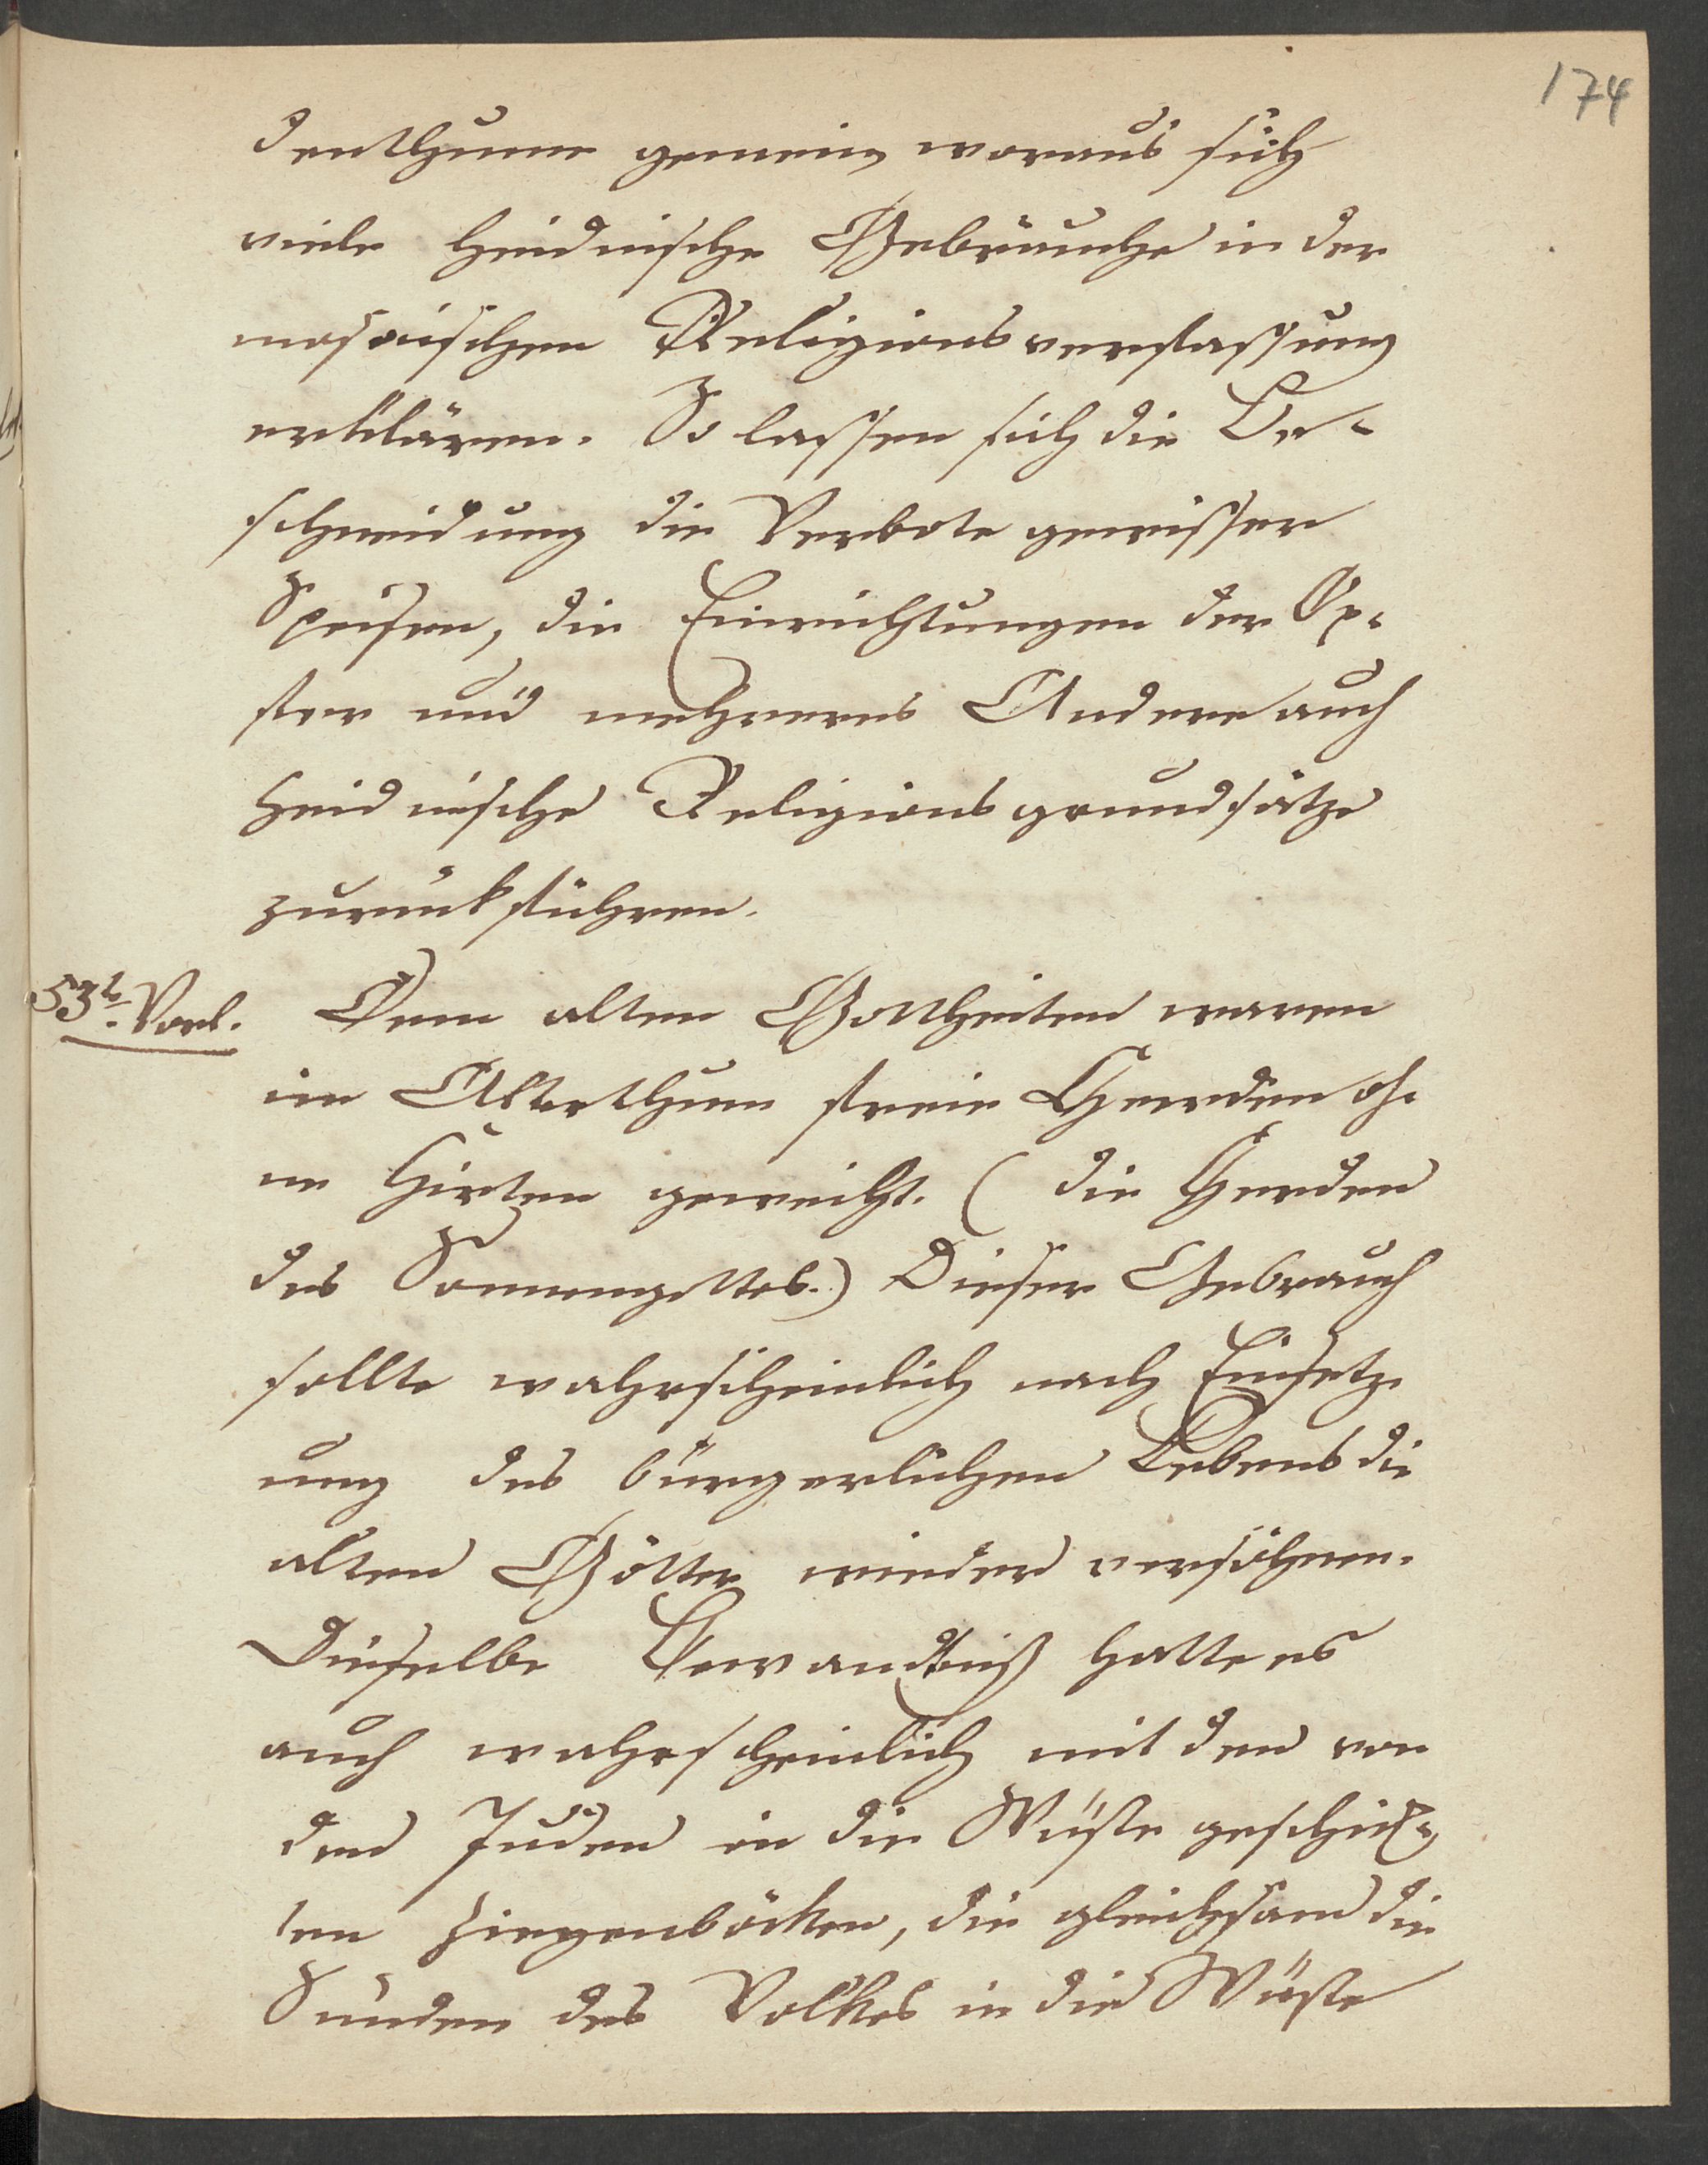 174
denthume gemein, woraus sich
viele heidnische Gebräuche in der
mosaischen Religionsverfassung
erklären. So lassen sich die Be-
schneidung die Verbote gewisser
Speisen, die Einrichtungen der Op-
fer und mehreres Andere auch
heidnische Religionsgrundsätze
zurükführen.
53t. Vorl.
Dem alten Gottheiten waren
im Alterthum freie Heerden oh-
ne Hirten geweiht. (die Heerden
des Sonnengottes.) Dieser Gebrauch
sollte wahrscheinlich nach Einsetz-
ung des bürgerlichen Lebens die
alten Götter wieder versöhnen.
Dieselbe Bewandtniß hatte es
auch wahrscheinlich mit den von
den Juden in die Wüste geschik-
ten Ziegenböcken, die gleichsam die
Sünden des Volkes in die Wüste